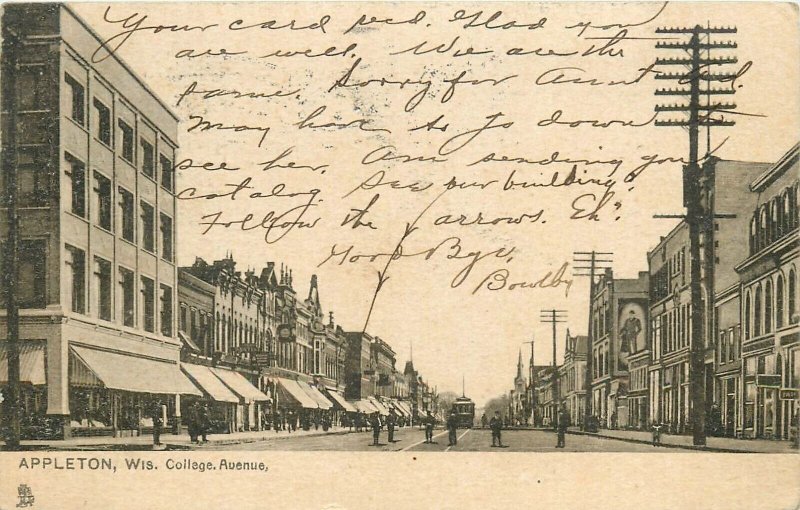 Your card recd. Glad you
are well. We are the
same. Sorry for Aunt Ad.
May have to go down to
see her. Am sending you
catalog. See our building?
Follow the arrows. Eh?
Good Bye.
Bowlby
APPLETON, WIS. College. Avenue,